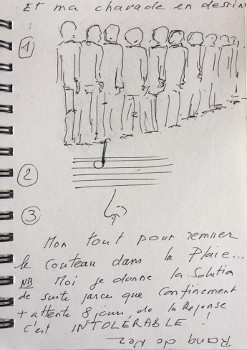 Et ma charade en dessin
1
2
3
Mon tout pour remuer
le couteau dans la plaie...
NB Moi je donne la solution
de suite parce que confinement
+ attente 8 jours de la réponse
c'est INTOLÉRABLE !
Rang do nez